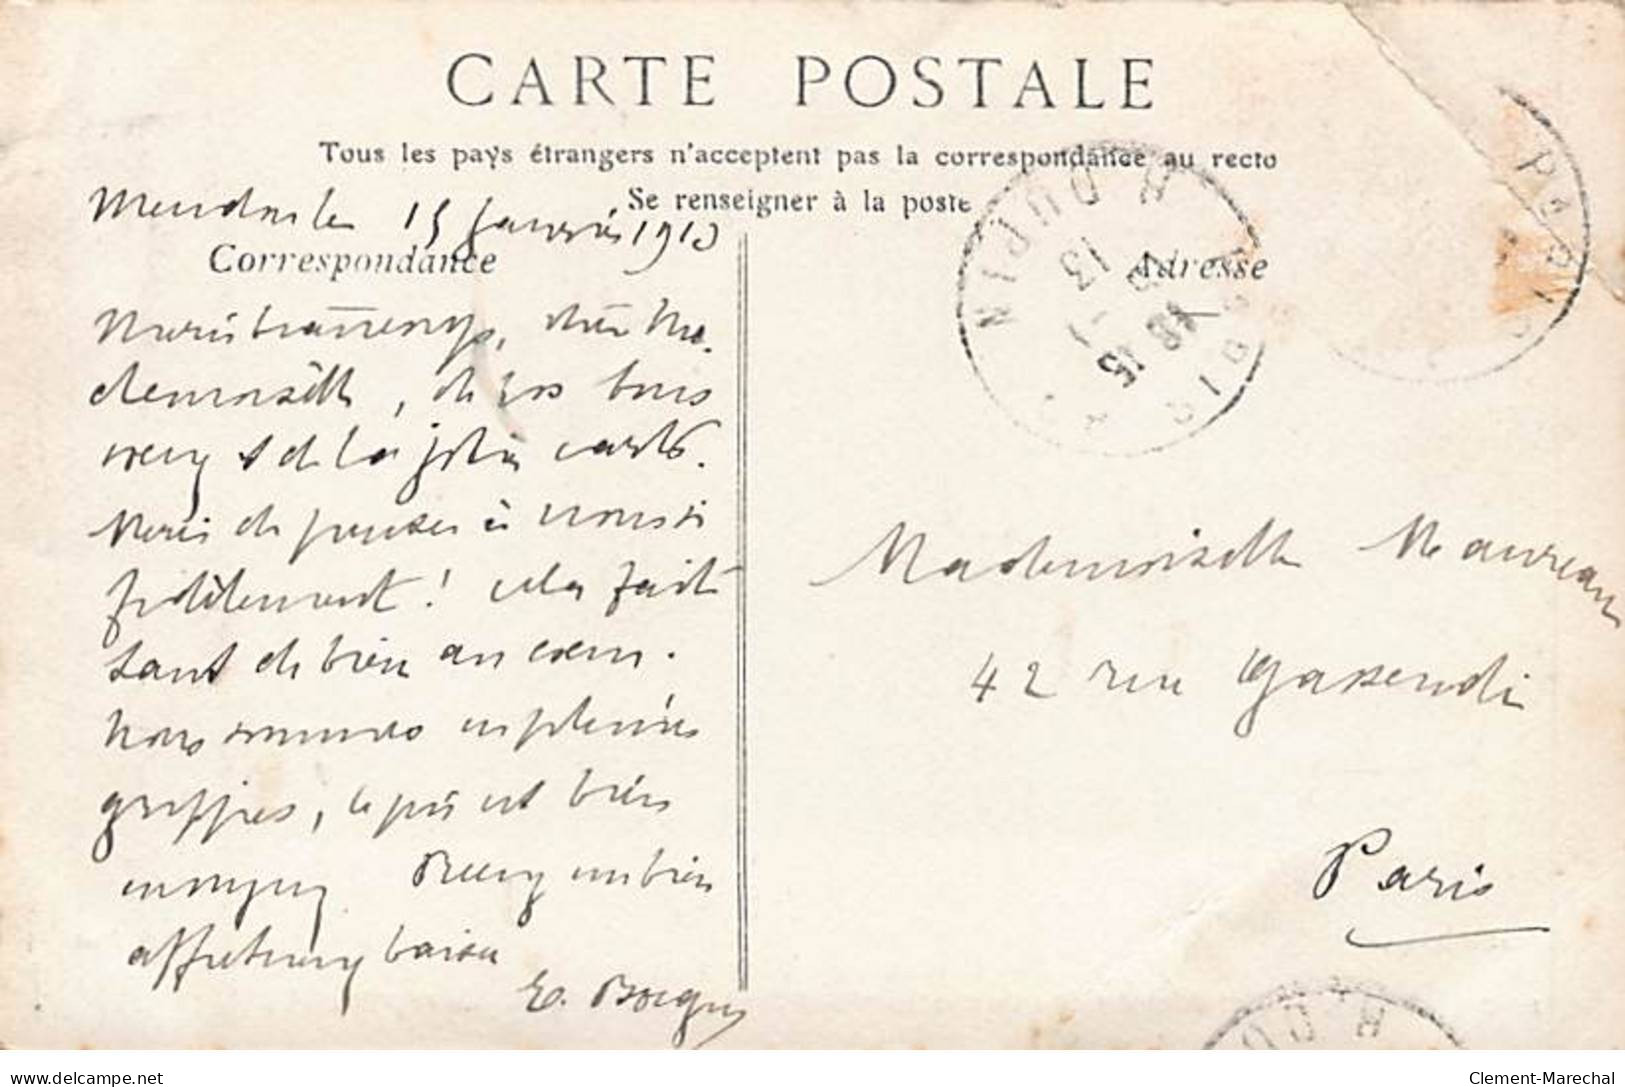 CARTE POSTALE
Tous les pays étrangers n'acceptent pas la correspondance au recto
Se renseigner à la poste
15 Janvier 1910
Correspondance
Adresse
PARIS
R. DUPIN
15
13
Merci, chère Ma-
demoiselle, de vos bons
vœux & de la jolie carte.
Merci de penser à nous si
fidèlement ! Cela fait
tant de bien au cœur.
Nous sommes en pleines
grippes, le pis est bien
Recevez un bien
affectueux baiser
E.
Mademoiselle Maureau
42 rue Gassendi
Paris
PARIS
R. DU
Clement-Marechal